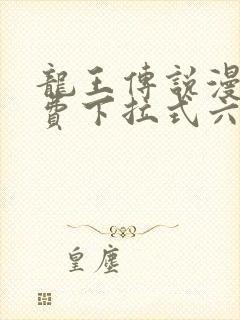 龍王傳說漫
費下拉式六
皇塵